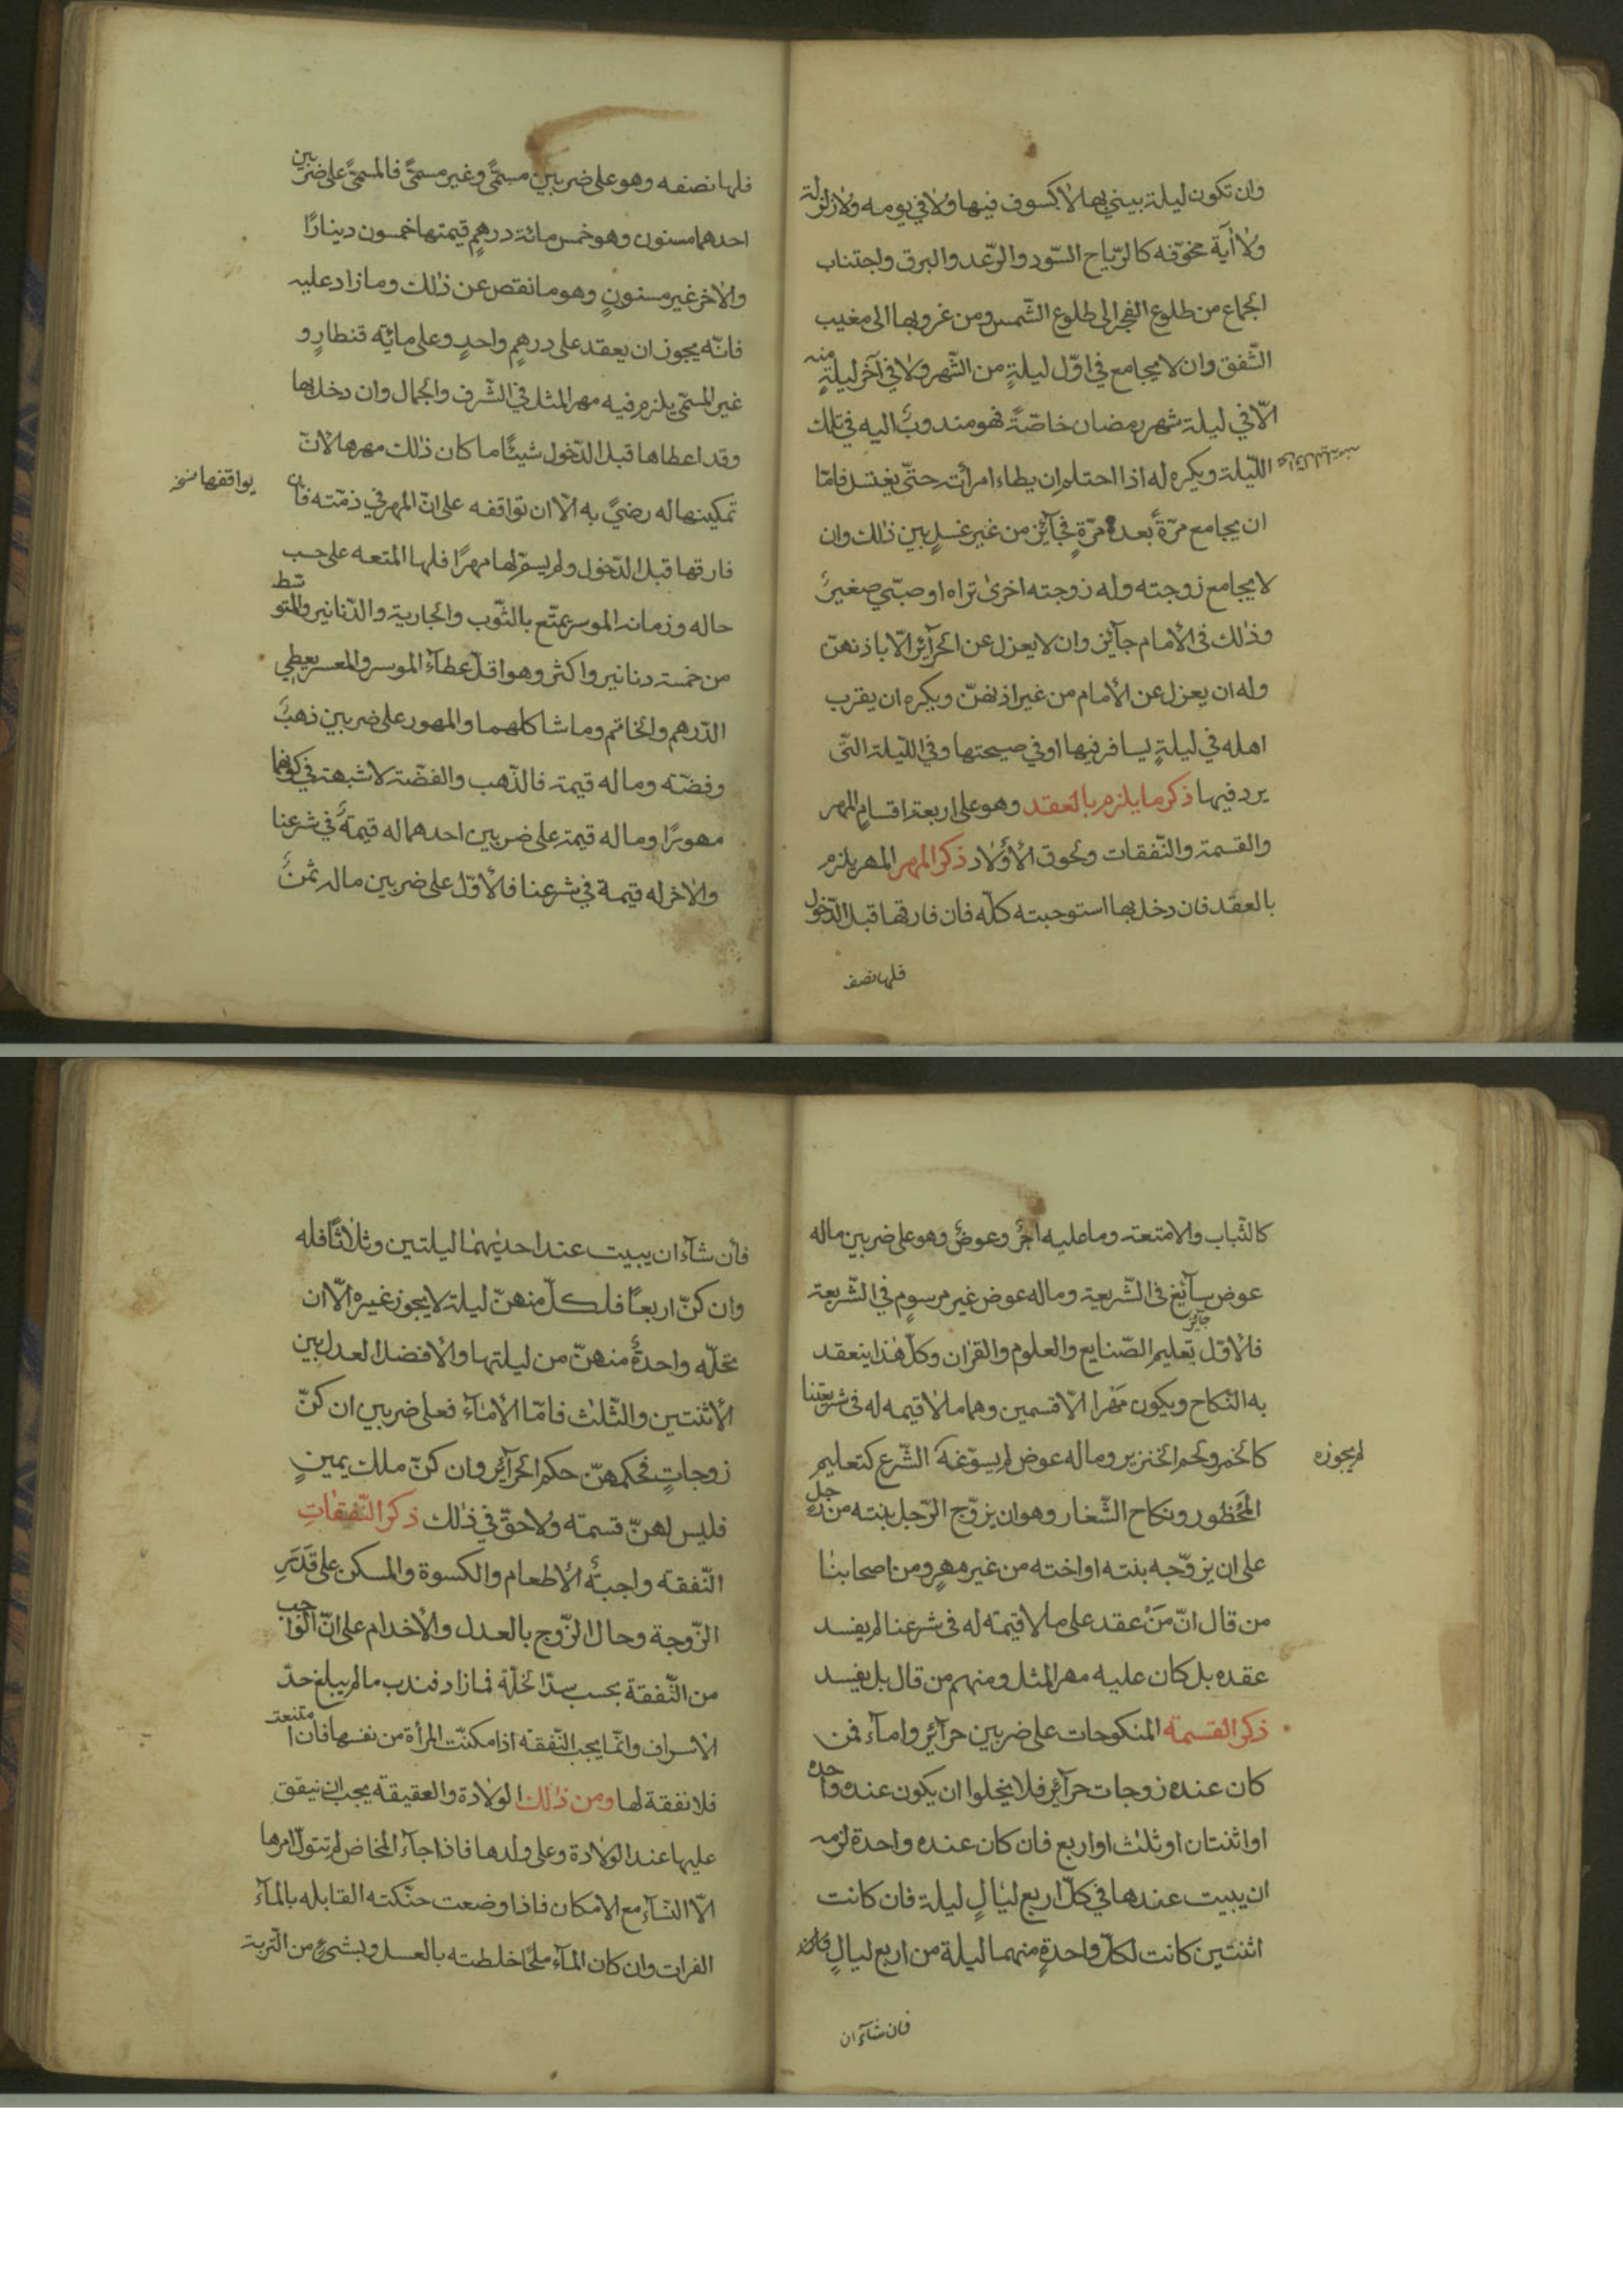 وان تكون ليلة يبني بها لا كسوف فيها ولا في يومه ولا زلزلة
ولا اية مخوّفه كالرّياح السّود والرّعد والبرق واجتناب
الجماع من طلوع الفجر الى طلوع الشّمس ومن غروبها الى مغيب
الشّفق وان لا يجامع في اوّل ليلةٍ من الشّهر ولا في آخر ليلةٍ منه
الّا في ليلة شهر رمضان خاصّةً فهو مندوبٌ اليه في تلك
اللّيلة ويكره له اذا احتلم ان يطاء امرأته حتّى يغتسل فامّا
ان يجامع مرّةً بعد مرّةٍ فجآئز من غير غسلٍ بين ذلك وان
لا يجامع زوجته وله زوجته اخرى تراه او صبّي صغيرٌ
وذلك فى الأمام جآئز وان لا يعزل عن الحرآئر الّا باذنهنّ
وله ان يعزل عن الأمام من غير اذنهنّ ويكره ان يقرب
اهله في ليلةٍ يسافر فيها او في صبيحتها وفي اللّيلة التّى
يرد فيها ذكر ما يلزم بالعقد وهو على اربعة اقسامٍ المهر
والقسمة والنّفقات ولحوق الأولاد ذكر المهر المهر يلزم
بالعقد فان دخل بها استوجبته كلّه فان فارقها قبل الدّخول
فلها نصف
فلها نصفه وهو على ضربين مسمّىً وغير مسمّىً فالمسمّىً على ضربين
احدهما مسنون وهو خمس مائة درهمٍ قيمتها خمسون دينارًا
والاخر غير مسنونٍ وهو ما نقص عن ذلك وما زاد عليه
فانّه يجوز ان يعقد على درهمٍ واحدٍ وعلى مائه قنطارٍ و
غير المسمّى يلزم فيه مهر المثل في الشّرف والجمال وان دخل بها
وقد اعطاها قبل الدّخول شيئًا ما كان ذلك مهرها لانّ
تمكينها له رضىً به الّا ان تواقفه على انّ المهر في ذمّته فان
يواقفها نسخه
فارقها قبل الدّخول ولم يسمّ لها مهرًا فلها المتعه على حسب
حاله وزمانه الموسر يمتّع بالثّوب والجارية والدّنانير والمتوسّط
من خمسة دنانير واكثر وهو اقلّ عطآء الموسر والمعسر يعطي
الدّرهم والخاتم وما شاكلهما والمهور على ضربين ذهبٌ
وفضّه وماله قيمة فالذّهب والفضّة لا شبهة في كونهما
مهورًا وماله قيمة على ضربين احدهما له قيمةٌ في شرعنا
والاخر له قيمة في شرعنا فالأوّل على ضربين ماله ثمنٌ
كالثّياب والامتعة وما عليه اجرٌ وعوضٌ وهو على ضربين ماله
عوض سآئغ فى الشّريعة وماله عوض غير مرسومٍ في الشّريعة
جائز
فالأوّل تعليم الصّنايع والعلوم والقران وكلّ هذا ينعقد
به النّكاح ويكون مَهْرا الّا قسمين وهما ملا قيمه له فى شريعتنا
كالخمر ولحم الخنزير وماله عوض لم يسوّغه الشّرع كتعليم
لم يجوزه
المَحظور ونكاح الشّغار وهو ان يزوّج الرّجل بنته من رجلٍ
على ان يزوّجه بنته او اخته من غير مهرٍ ومن اصحابنا
من قال انّ مَنْ عقد على ملا قيمته له فى شرعنا لم يفسد
عقده بل كان عليه مهر المثل ومنهم من قال بل يفسد
ذكر القسمة المنكوحات على ضربين حرآئر وامآء فمن
كان عنده زوجات حرآئر فلا يخلوا ان يكون عنده واحده
او اثنتان او ثلث او اربع فان كان عنده واحدة لزمه
ان يبيت عندها في كلّ اربع ليالٍ ليلة فان كانت
اثنتين كانت لكلّ واحدةٍ منهما ليلة من اربع ليالٍ
فان شآء ان
فان شآء ان يبيت عند احديهما ليلتين وثلاثًا فله
وان كنّ اربعًا فلكلّ منهنّ ليلة لا يجوز غيره الّا ان
تحلّه واحدةٌ منهنّ من ليلتها والأفضل العدل بين
الأثنتين والثّلث فامّا الأمآء فعلى ضربين ان كنّ
زوجاتٍ فحكمهنّ حكم الحرآئر وان كنّ ملك يمينٍ
فليس لهنّ قسمته ولا حقّ في ذلك ذكر النّفقاتِ
النّفقه واجبةٌ الأطعام والكسوة والمسكن على قَدَرِ
الزّوجة وحال الزّوج بالعدل والأخدام على انّ الواجب
من النّفقة بحسب سدّ الخلّة فما زاد فندب ما لم يبلغ حدّ
الاسراف وانّما يجب النّفقه اذا مكنّت المرأة من نفسها فان امتنعت
فلا نفقة لها ومن ذلك الولادة والعقيقة يجب ان ينفق
عليها عند الولادة وعلى ولدها فاذا جآء المخاض لم تتولّ امرها
الّا النّسآء مع الامكان فاذا وضعت حنّكته القابله بالمآء
الفرات وان كان المآء ملحًا خلطته بالعسل وبشىءٍ من التّربة